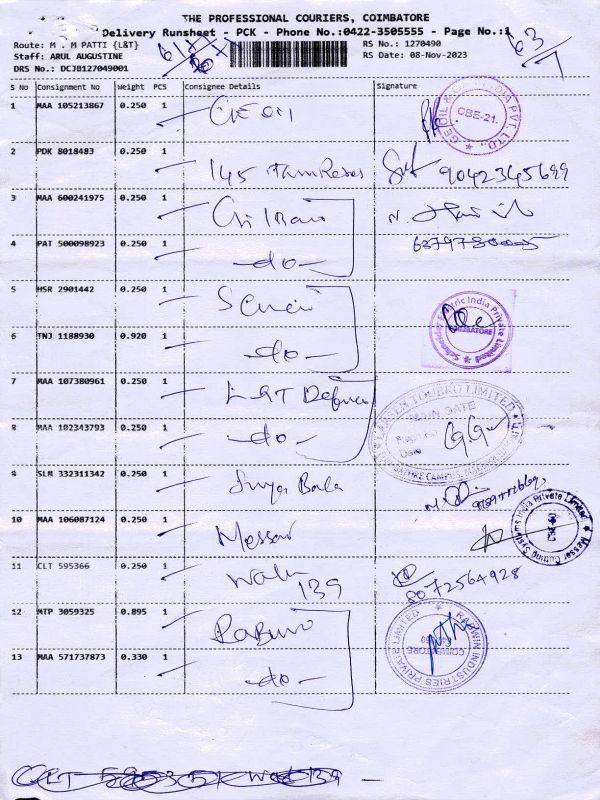 THE PROFESSIONAL COURIERS, COIMBATORE
Delivery Runsheet - PCK - Phone No.:0422-3505555 - Page No.:1
63/1
Route: M . M PATTI {L&T}
RS No.: 1270490
Staff: ARUL AUGUSTINE
RS Date: 08-Nov-2023
DRS No.: DCJB127049001
S No Consignment No Weight PCS Consignee Details Signature
1 MAA 105213867 0.250 1
CBE-21.
2 PDK 8018483 0.250 1 145 9042345699
3 MAA 600241975 0.250 1
4 PAT 500098923 0.250 1 -do-
5 HSR 2901442 0.250 1
Schneider Electric India Private Limited COIMBATORE
6 TNJ 1188930 0.920 1 -do-
7 MAA 107380961 0.250 1 L&T Defence
LARSEN & TOUBRO LIMITED
MAIN GATE
Date
8 MAA 102343793 0.250 1 -do-
9 SLM 332311342 0.250 1 Surya Bala
10 MAA 106087124 0.250 1 Messer
Messer Cutting Systems India Private Limited
11 CLT 595366 0.250 1 139 8072564928
12 MTP 3059325 0.895 1
INDUSTRIES PRIVATE LIMITED
13 MAA 571737873 0.330 1 -do-